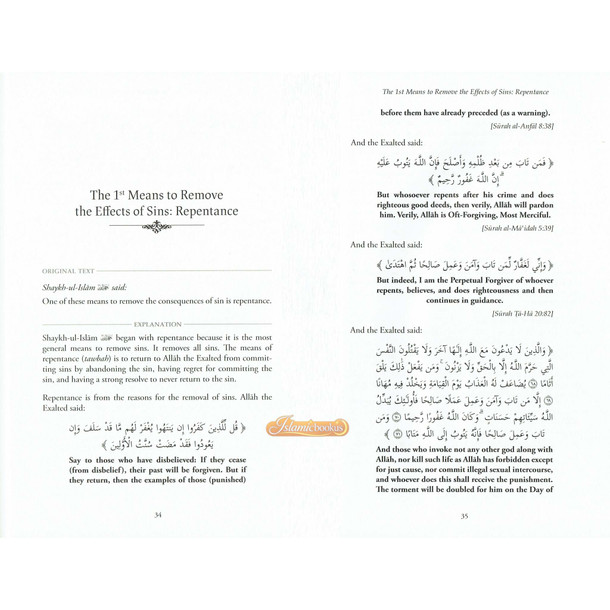 The 1st Means to Remove
the Effects of Sins: Repentance
ORIGINAL TEXT
Shaykh-ul-Islām said:
One of these means to remove the consequences of sin is repentance.
EXPLANATION
Shaykh-ul-Islām began with repentance because it is the most
general means to remove sins. It removes all sins. The means of
repentance (tawbah) is to return to Allāh the Exalted from commit-
ting sins by abandoning the sin, having regret for committing the
sin, and having a strong resolve to never return to the sin.
Repentance is from the reasons for the removal of sins. Allāh the
Exalted said:
﴿ قُل لِّلَّذِينَ كَفَرُوا إِن يَنتَهُوا يُغْفَرْ لَهُم مَّا قَدْ سَلَفَ وَإِن
يَعُودُوا فَقَدْ مَضَتْ سُنَّتُ الْأَوَّلِينَ ﴾
Say to those who have disbelieved: If they cease
(from disbelief), their past will be forgiven. But if
they return, then the examples of those (punished)
34
The 1st Means to Remove the Effects of Sins: Repentance
before them have already preceded (as a warning).
[Sūrah al-Anfāl 8:38]
And the Exalted said:
﴿ فَمَن تَابَ مِن بَعْدِ ظُلْمِهِ وَأَصْلَحَ فَإِنَّ اللَّهَ يَتُوبُ عَلَيْهِ
ۗ إِنَّ اللَّهَ غَفُورٌ رَّحِيمٌ ﴾
But whosoever repents after his crime and does
righteous good deeds, then verily, Allāh will pardon
him. Verily, Allāh is Oft-Forgiving, Most Merciful.
[Sūrah al-Mā'idah 5:39]
And the Exalted said:
﴿ وَإِنِّي لَغَفَّارٌ لِّمَن تَابَ وَآمَنَ وَعَمِلَ صَالِحًا ثُمَّ اهْتَدَىٰ ﴾
But indeed, I am the Perpetual Forgiver of whoever
repents, believes, and does righteousness and then
continues in guidance.
[Sūrah Ṭā-Hā 20:82]
And the Exalted said:
﴿ وَالَّذِينَ لَا يَدْعُونَ مَعَ اللَّهِ إِلَٰهًا آخَرَ وَلَا يَقْتُلُونَ النَّفْسَ
الَّتِي حَرَّمَ اللَّهُ إِلَّا بِالْحَقِّ وَلَا يَزْنُونَ ۚ وَمَن يَفْعَلْ ذَٰلِكَ يَلْقَ
أَثَامًا ﴿٦٨﴾ يُضَاعَفْ لَهُ الْعَذَابُ يَوْمَ الْقِيَامَةِ وَيَخْلُدْ فِيهِ مُهَانًا
﴿٦٩﴾ إِلَّا مَن تَابَ وَآمَنَ وَعَمِلَ عَمَلًا صَالِحًا فَأُولَٰئِكَ يُبَدِّلُ
اللَّهُ سَيِّئَاتِهِمْ حَسَنَاتٍ ۗ وَكَانَ اللَّهُ غَفُورًا رَّحِيمًا ﴿٧٠﴾ وَمَن
تَابَ وَعَمِلَ صَالِحًا فَإِنَّهُ يَتُوبُ إِلَى اللَّهِ مَتَابًا ﴿٧١﴾ ﴾
And those who invoke not any other god along with
Allāh, nor kill such life as Allāh has forbidden except
for just cause, nor commit illegal sexual intercourse,
and whoever does this shall receive the punishment.
The torment will be doubled for him on the Day of
35
Islamicbook.us